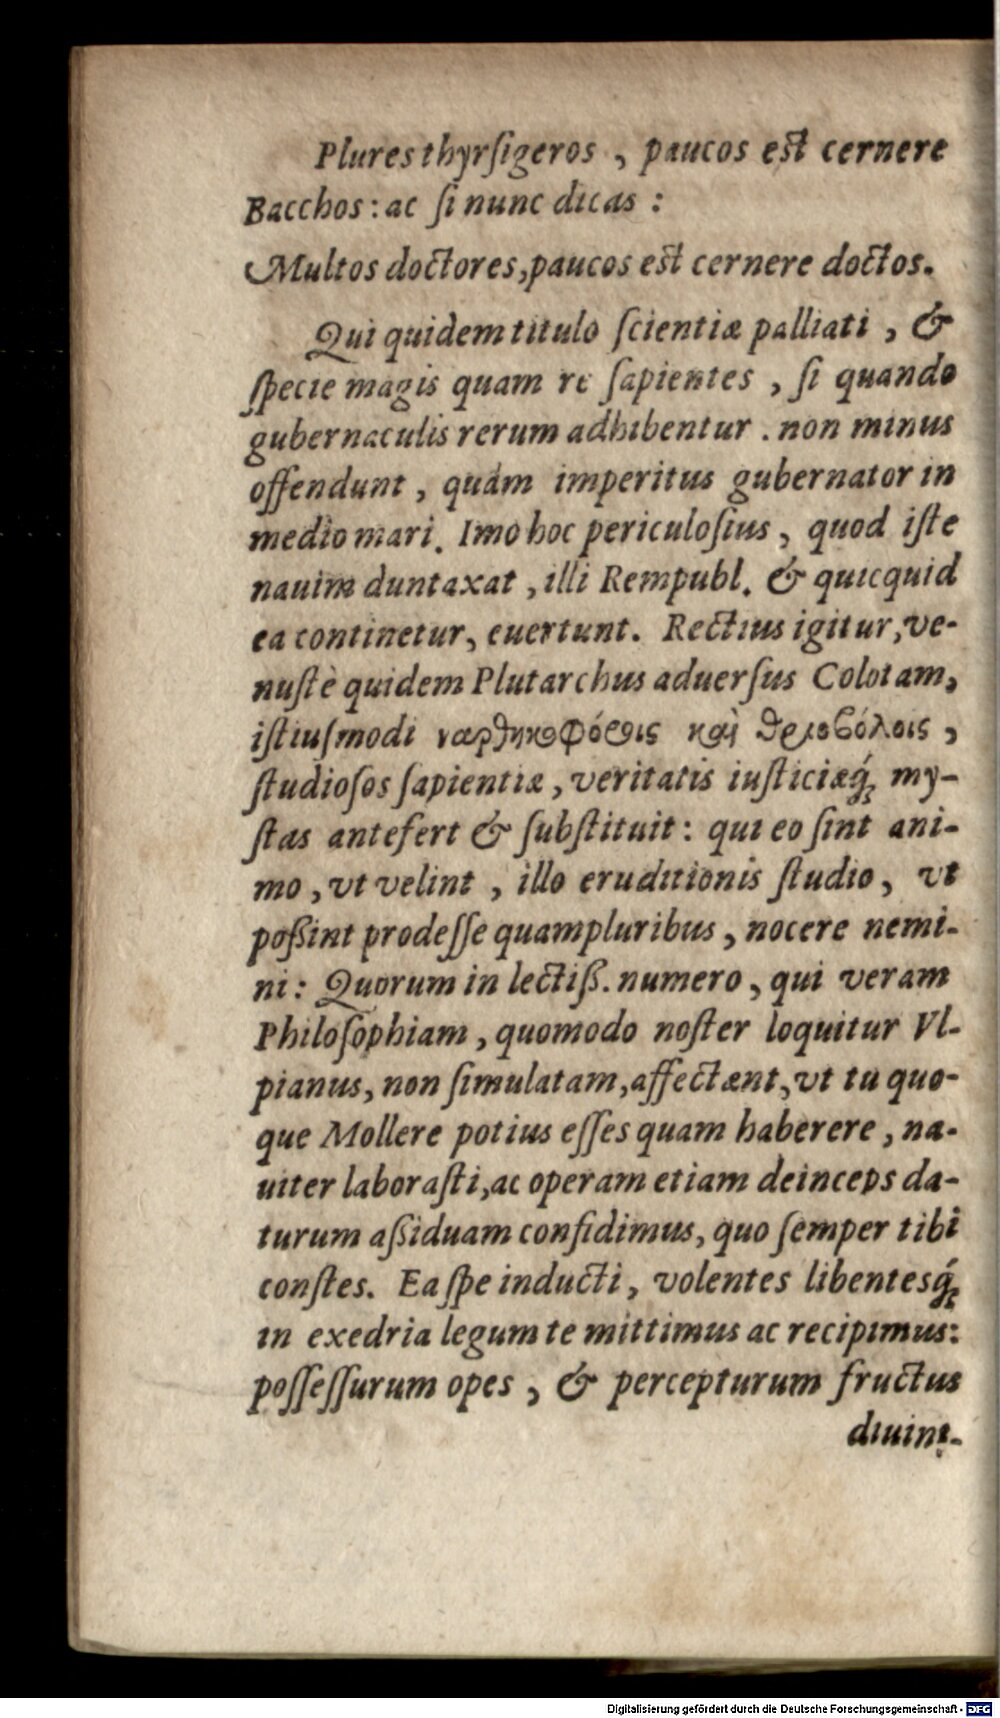 Plures thyrſigeros , paucos eſt cernere
Bacchos : ac ſi nunc dicas :
Multos doctores, paucos eſt cernere doctos.
Qui quidem titulo ſcientiæ palliati , &
ſpecie magis quam re ſapientes , ſi quando
gubernaculis rerum adhibentur . non minus
offendunt , quàm imperitus gubernator in
medio mari. Imo hoc periculoſius , quod iſte
nauim duntaxat , illi Rempubl. & quicquid
ea continetur, euertunt. Rectius igitur, ve-
nuſtè quidem Plutarchus aduerſus Colotam,
iſtiuſmodi ναρθηκοφόροις καὶ
ſtudioſos ſapientiæ , veritatis iuſticiæq́; my-
ſtas antefert & ſubſtituit : qui eo ſint ani-
mo , vt velint , illo eruditionis ſtudio , vt
poßint prodeſſe quampluribus , nocere nemi-
ni : Quorum in lectiß. numero , qui veram
Philoſophiam , quomodo noſter loquitur Vl-
pianus, non ſimulatam, affectænt, vt tu quo-
que Mollere potius eſſes quam haberere , na-
uiter laboraſti, ac operam etiam deinceps da-
turum aßiduam confidimus, quo ſemper tibi
conſtes. Ea ſpe inducti , volentes libentesq́;
in exedria legum te mittimus ac recipimus:
poſſeſſurum opes , & percepturum fructus
diuini-
Digitalisierung gefördert durch die Deutsche Forschungsgemeinschaft - DFG